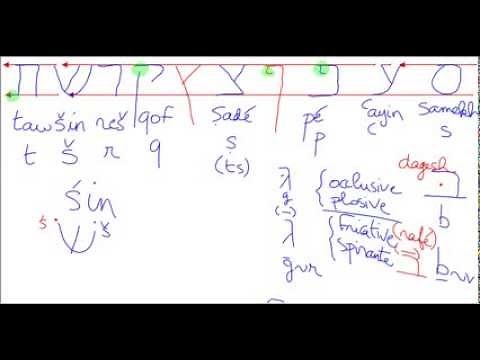 ס ע פ ף צ ץ ק ר ש ת
taw šin reš qof ṣadé pé ʿayin samekh
t š r q ṣ p ʿ s
(ts)
dagesh
śin
ś š
g occlusive
(–) plosive b
fricative (rafé)
spirante (=)
ḡ vr b v